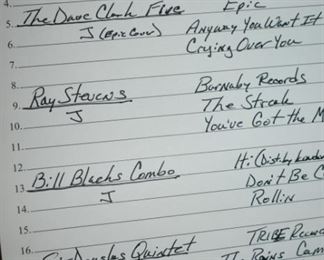 4.
5. The Dave Clark Five Epic
6. J (Epic Cover) Anyway You Want It
7. Crying Over You
8. Burnaby Records
9. Ray Stevens The Streak
10. J You've Got the M
11.
12. Hi (Dist. by London
13. Bill Blacks Combo Don't Be C
14. J Rollin
15.
16. Douglas Quintet TRIBE Records
The Rains Cam